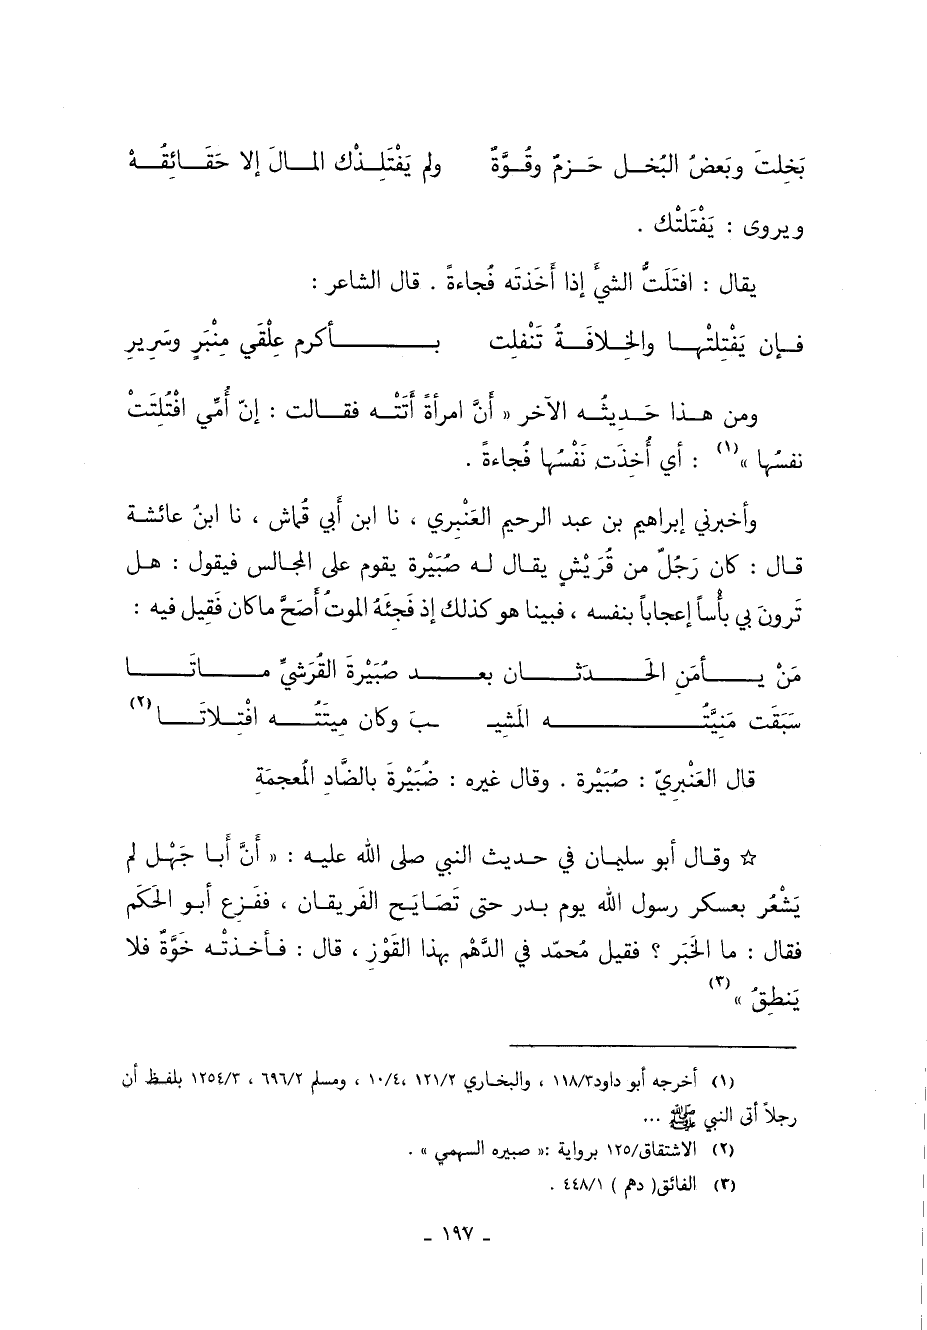 بَخِلتَ وبَعضُ البُخـل حَـزمٌ وقُـوَّةٌ ولم يَفْتَلِـذْك المـالَ إلا حَقَـائِقُـهْ
ويروى : يَفْتَلتْك .
يقال : افتَلَتُّ الشئَ إذا أَخَذتَه فُجاءةً . قال الشاعر :
فـإن يَفْتِلتْهـا والخِلافَـةُ تَنْفلِت بـأكرم عِلْقَي مِنْبَرٍ وسَرِيرِ
ومن هـذا حَـديثُـه الآخر « أَنَّ امرأةً أَتَتْـه فقـالت : إنّ أُمِّي افْتُلِتَتْ
نفسُها »(١) : أي أُخِذَت نَفْسُها فُجاءةً .
وأخبرني إبراهيم بن عبد الرحيم العَنْبري ، نا ابن أبي قُماش ، نا ابنُ عائشة
قـال : كان رَجُلٌ من قُرَيْشٍ يقال لـه صُبَيْرة يقوم على المجالس فيقول : هـل
تَرونَ بي بأُساً إعجاباً بنفسه ، فبينا هو كذلك إذ فَجئَهُ الموتُ أصَحَّ ما كان فَقِيل فيه :
مَنْ يـأمَن الحَـدثـان بعـد صُبَيْرَةَ القُرَشيِّ مـاتَـا
سَبَقَت مَنِيَّتُـه المَشِيـ ـبَ وكان مِيتَتُـه افْتِـلاتَـا(٢)
قال العَنْبريّ : صُبَيْرة . وقال غيره : ضُبَيْرَة بالضَّاد المُعجمَة
☆ وقـال أبو سليمان في حـديث النبي صلى الله عليـه : « أَنَّ أَبـا جَهْـل لم
يَشْعُر بعسكر رسول الله يوم بـدر حتى تَصَايَح الفَريقان ، ففَزِع أبـو الحَكَم
فقال : ما الخَبَر ؟ فقيل مُحمّد في الدَّهْم بهذا القَوْز ، قال : فـأخـذتْـه خَوَّةٌ فلا
يَنطِقُ »(٣)
(١) أخرجه أبو داود١١٨/٣ ، والبخاري ١٢١/٢ ،١٠/٤ ، ومسلم ٦٩٦/٢ ، ١٢٥٤/٣ بلفظ أن
رجلاً أتى النبي ﷺ ...
(٢) الاشتقاق/١٢٥ برواية :« صبيره السهمي » .
(٣) الفائق( دهم ) ٤٤٨/١ .
ـ ١٩٧ ـ